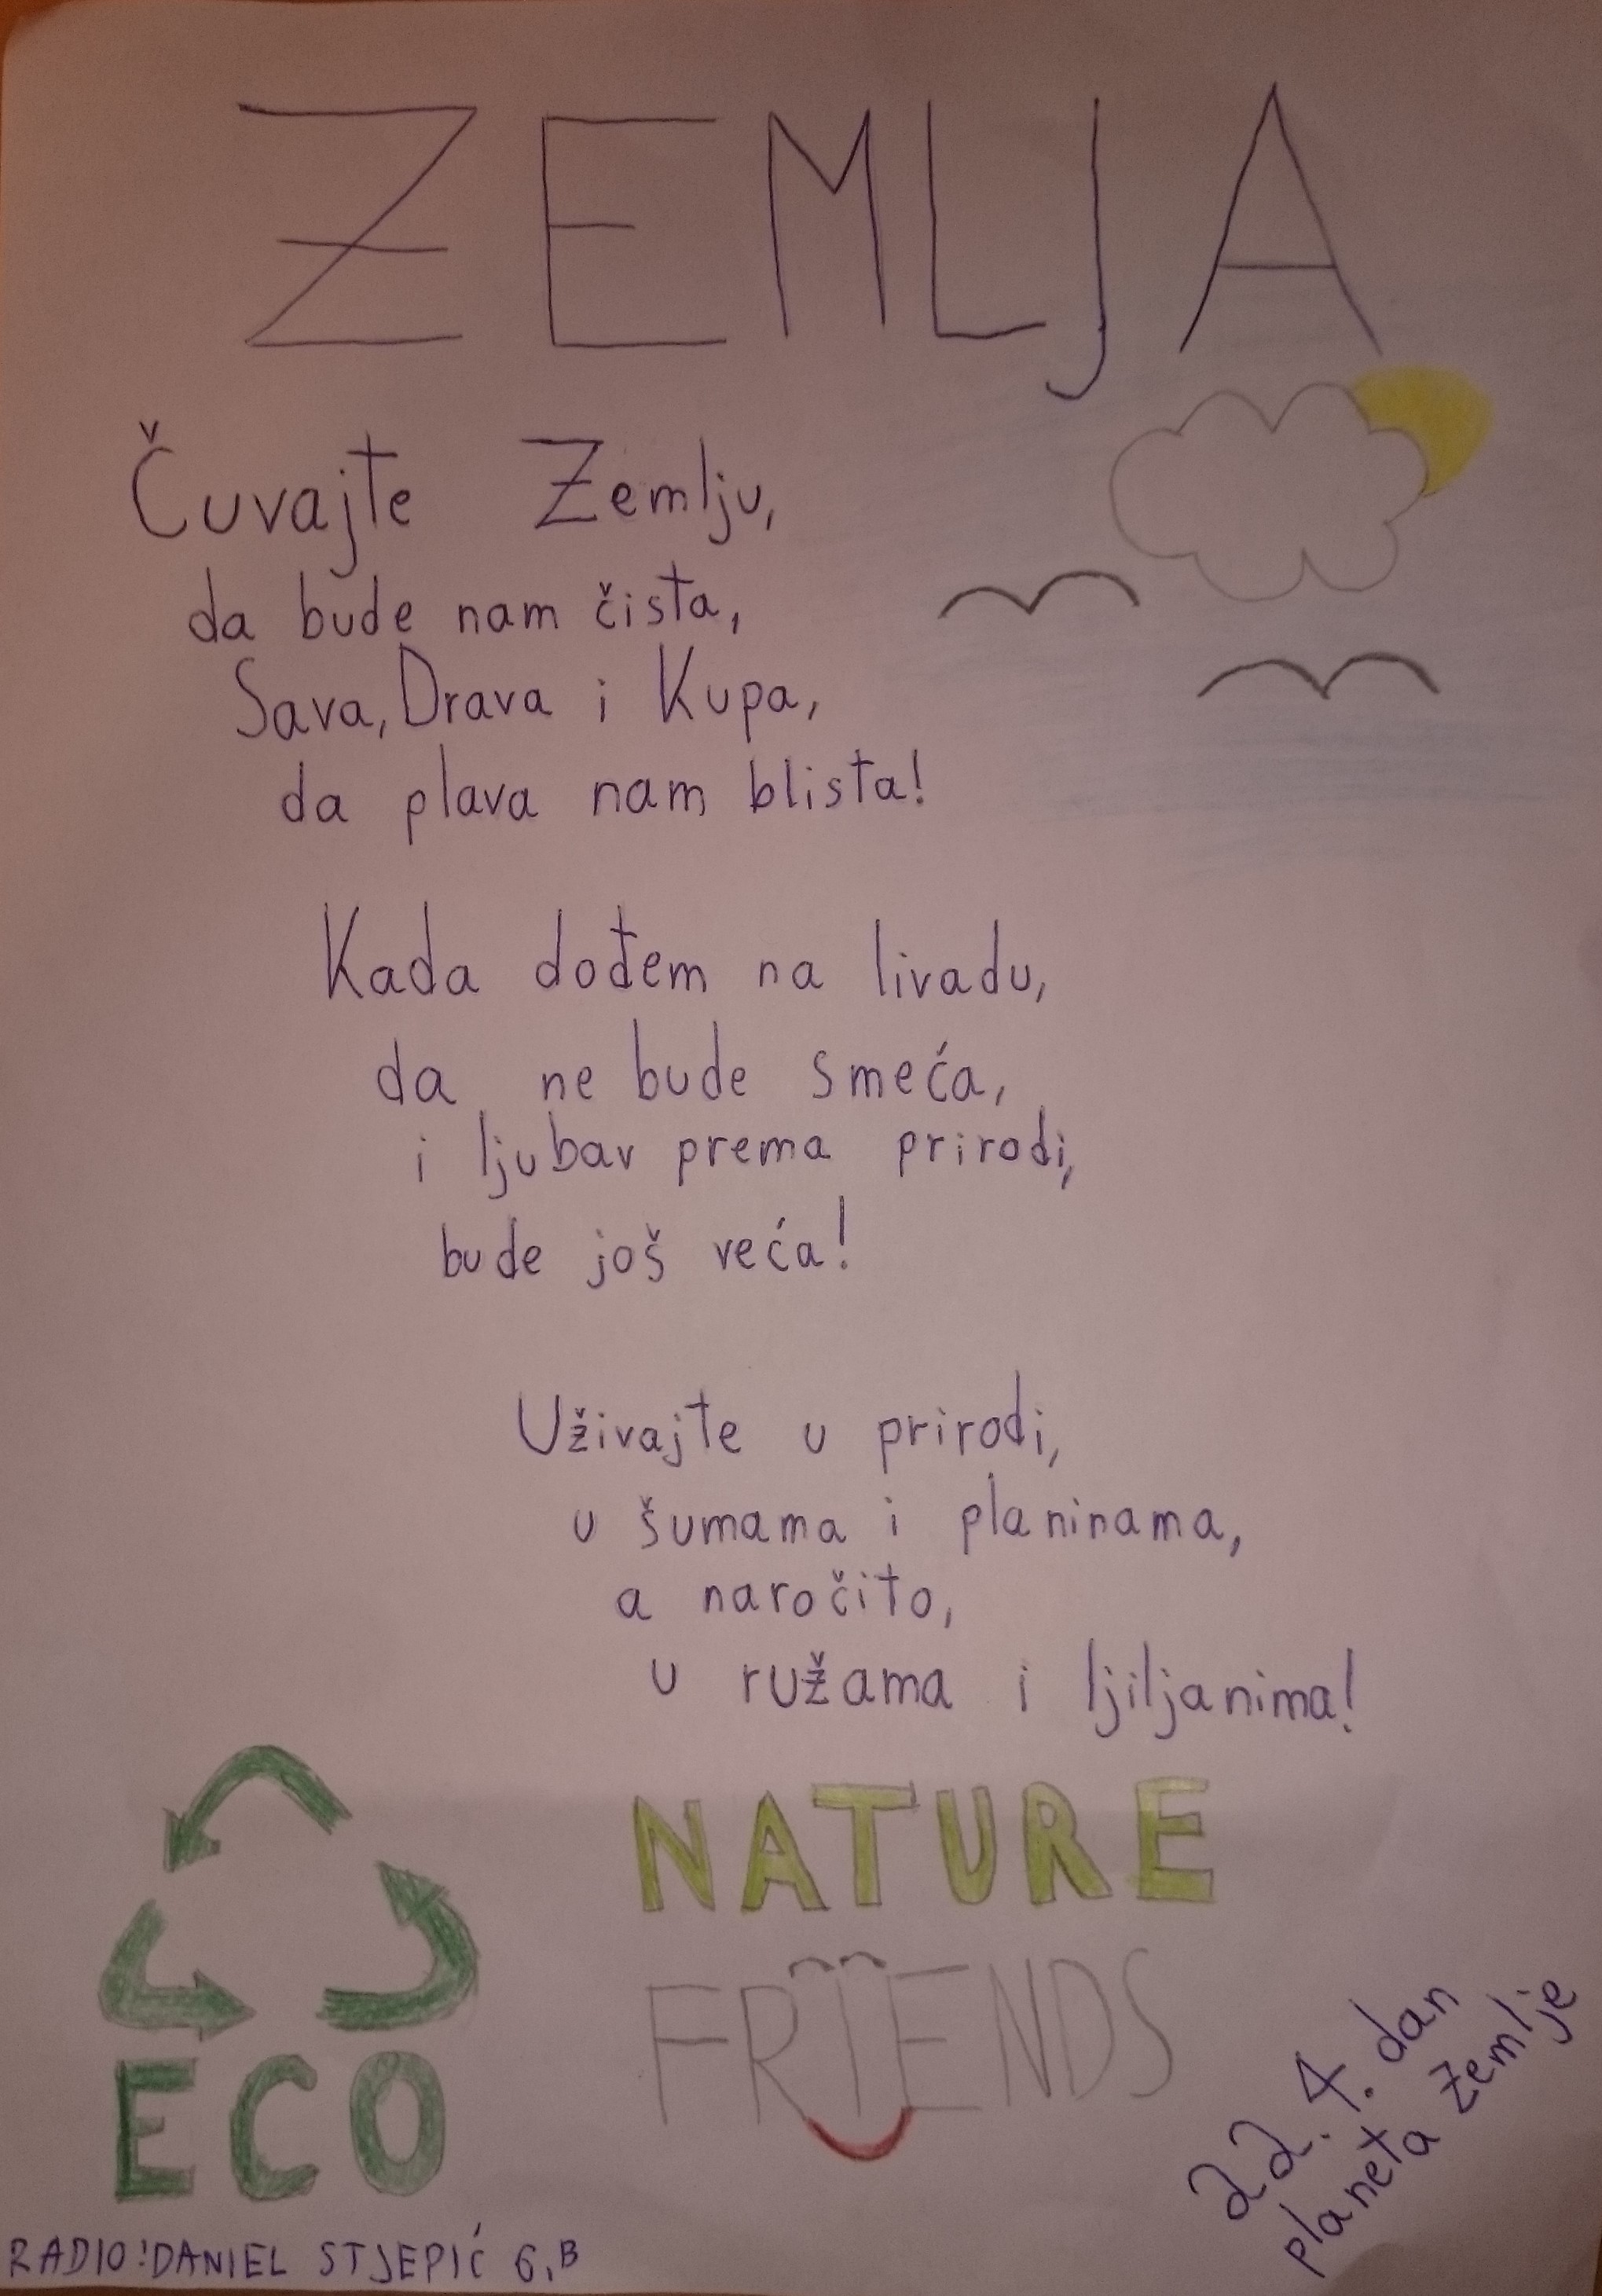 ZEMLJA
Čuvajte Zemlju,
da bude nam čista,
Sava, Drava i Kupa,
da plava nam blista!
Kada dođem na livadu,
da ne bude smeća,
i ljubav prema prirodi,
bude još veća!
Uživajte u prirodi,
u šumama i planinama,
a naročito,
u ružama i ljiljanima!
NATURE
FRIENDS
ECO
22. 4. dan
planeta zemlje
RADIO:DANIEL STJEPIĆ 6.B